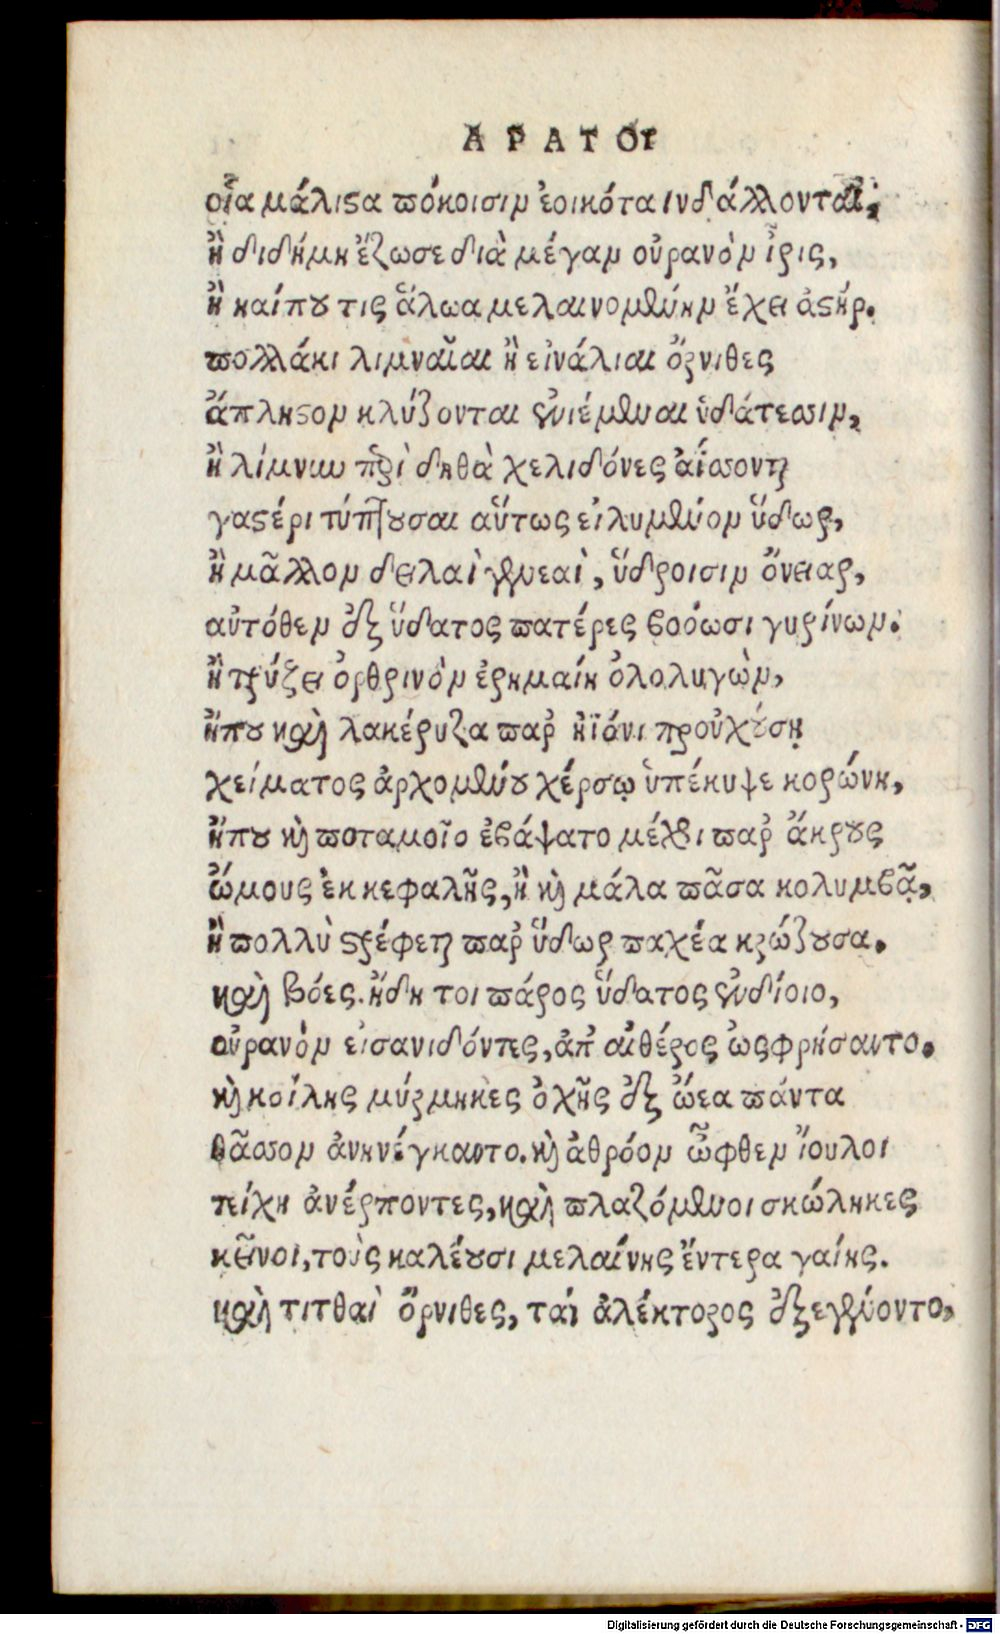 ΑΡΑΤΟΥ
οἷα μάλιστα πόκοισιν ἐοικότα ἰνδάλλονται,
ἢ διδήμη ἔζωσε διὰ μέγαν οὐρανὸν ἶρις,
ἢ καίπου τις ἅλωα μελαινομένην ἔχει ἀστήρ.
πολλάκι λιμναῖαι ἢ εἰνάλιαι ὄρνιθες
ἄπληστον κλύζονται ἐνιέμεναι ὑδάτεσσιν,
ἢ λίμνην περὶ δηθὰ χελιδόνες ἀΐσσονται
γαστέρι τύπτουσαι αὕτως εἰλυμένον ὕδωρ,
ἢ μᾶλλον δειλαὶ γενεαὶ, ὕδροισιν ὄνειαρ,
αὐτόθεν ἐξ ὕδατος πατέρες βοόωσι γυρίνων.
ἢ τρύζει ὀρθρινὸν ἐρημαίη ὀλολυγὼν,
ἤπου καὶ λακέρυζα παρ' ἠϊόνι προὐχούσῃ
χείματος ἀρχομένου χέρσῳ ὑπέκυψε κορώνη,
ἤπου καὶ ποταμοῖο ἐβάψατο μέχρι παρ' ἄκρους
ὤμους ἐκ κεφαλῆς, ἢ καὶ μάλα πᾶσα κολυμβᾷ,
ἢ πολλὺ στρέφεται παρ' ὕδωρ παχέα κρώζουσα.
καὶ βόες. ἤδη τοι πάρος ὕδατος ἐνδίοιο,
οὐρανὸν εἰσανιδόντες, ἀπ' αἰθέρος ὠσφρήσαντο.
καὶ κοίλης μύρμηκες ὀχῆς ἐξ ὤεα πάντα
θᾶσσον ἀνηνέγκαντο. καὶ ἀθρόον ὦφθεν ἴουλοι
τείχη ἀνέρποντες, καὶ πλαζόμενοι σκώληκες
κεῖνοι, τοὺς καλέουσι μελαίνης ἔντερα γαίης.
καὶ τιτθαὶ ὄρνιθες, ταὶ ἀλέκτορος ἐξεγένοντο,
Digitalisierung gefördert durch die Deutsche Forschungsgemeinschaft - DFG